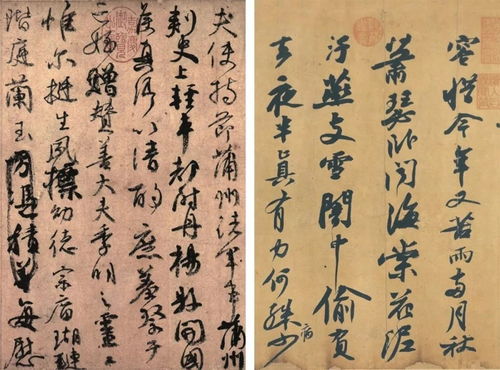 夫使持節蒲州諸軍事蒲州
刺史上輕車都尉丹楊縣開國
侯真卿以清酌庶羞祭于
亡姪贈贊善大夫季明之靈
惟爾挺生夙標幼德宗廟瑚璉
階庭蘭玉方憑積善每慰
容惜今年又苦雨兩月秋
蕭瑟卧聞海棠花泥
汙燕支雪闇中偷負
去夜半真有力何殊少
病